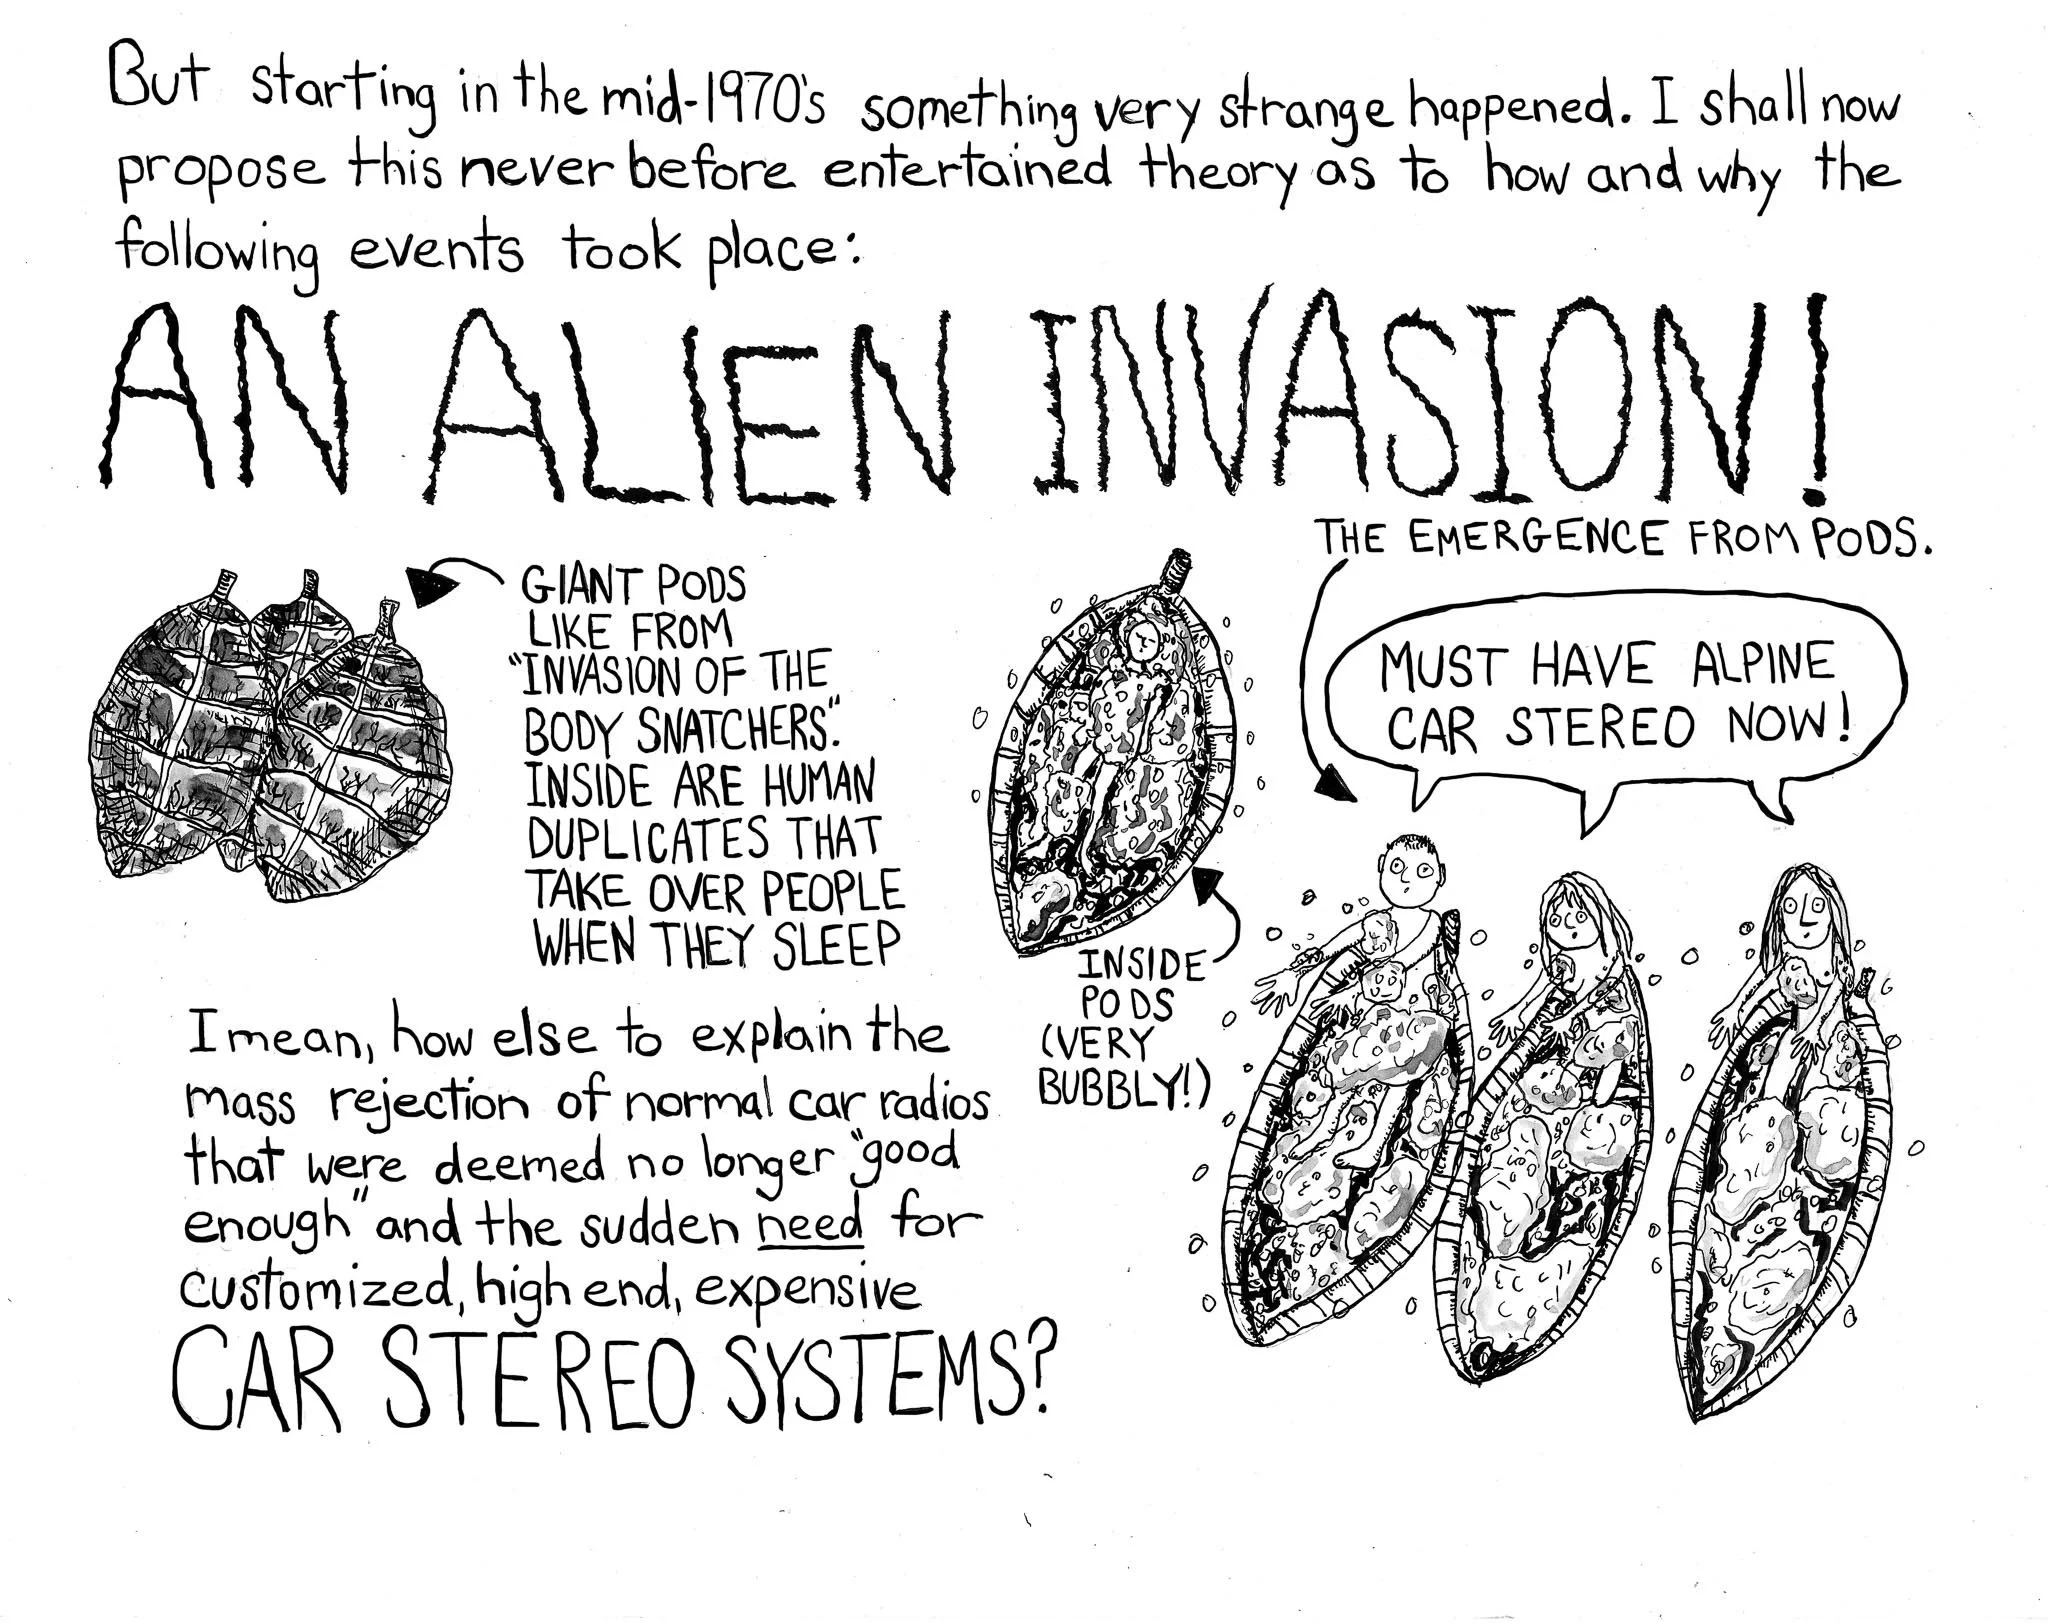 But starting in the mid-1970's something very strange happened. I shall now
propose this never before entertained theory as to how and why the
following events took place:
AN ALIEN INVASION!
GIANT PODS
LIKE FROM
"INVASION OF THE
BODY SNATCHERS".
INSIDE ARE HUMAN
DUPLICATES THAT
TAKE OVER PEOPLE
WHEN THEY SLEEP
INSIDE
PODS
(VERY
BUBBLY!)
THE EMERGENCE FROM PODS.
MUST HAVE ALPINE
CAR STEREO NOW!
I mean, how else to explain the
mass rejection of normal car radios
that were deemed no longer "good
enough" and the sudden need for
customized, high end, expensive
CAR STEREO SYSTEMS?